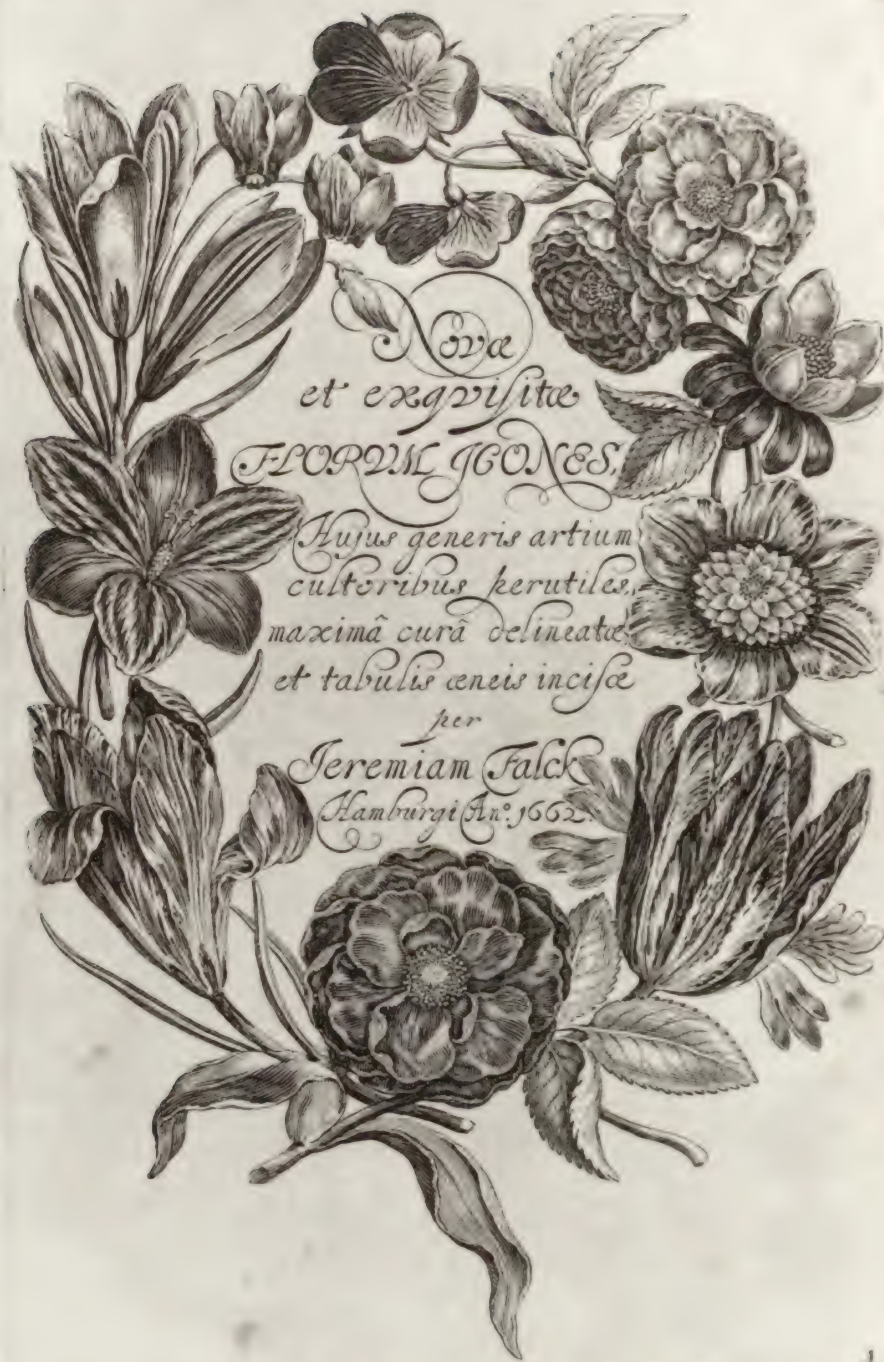 Novæ
et exqvisitæ
FLORVM ICONES,
Hujus generis artium
cultoribus perutiles,
maximâ curâ delineatæ
et tabulis œneis incisæ
per
Jeremiam Falck
Hamburgi Anº. 1662.
1